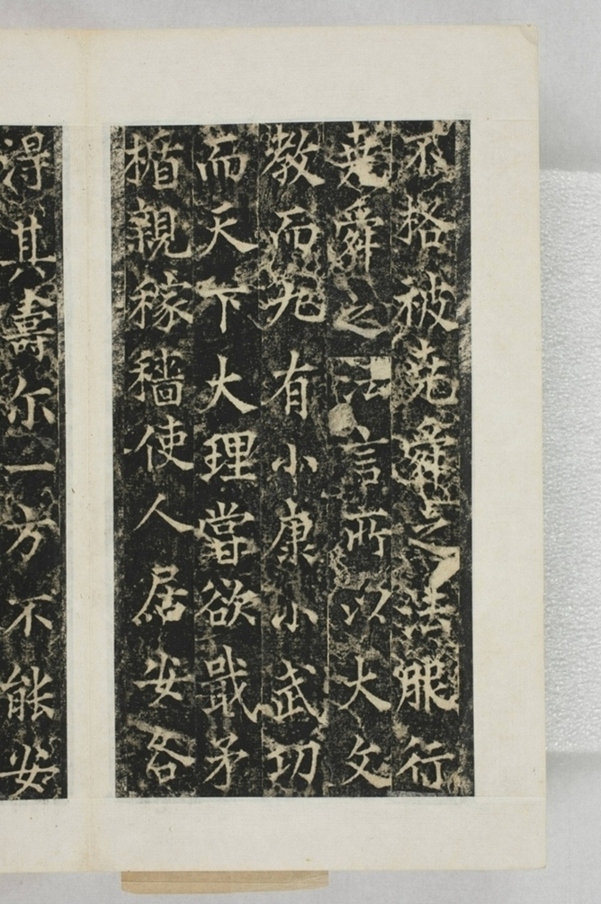 不格被堯舜之法服行
堯舜之法言所以大文
教而尨有小康小武功
而天下大理嘗欲戢矛
楯親稼穡使人居安各
得其壽尔一方不能安